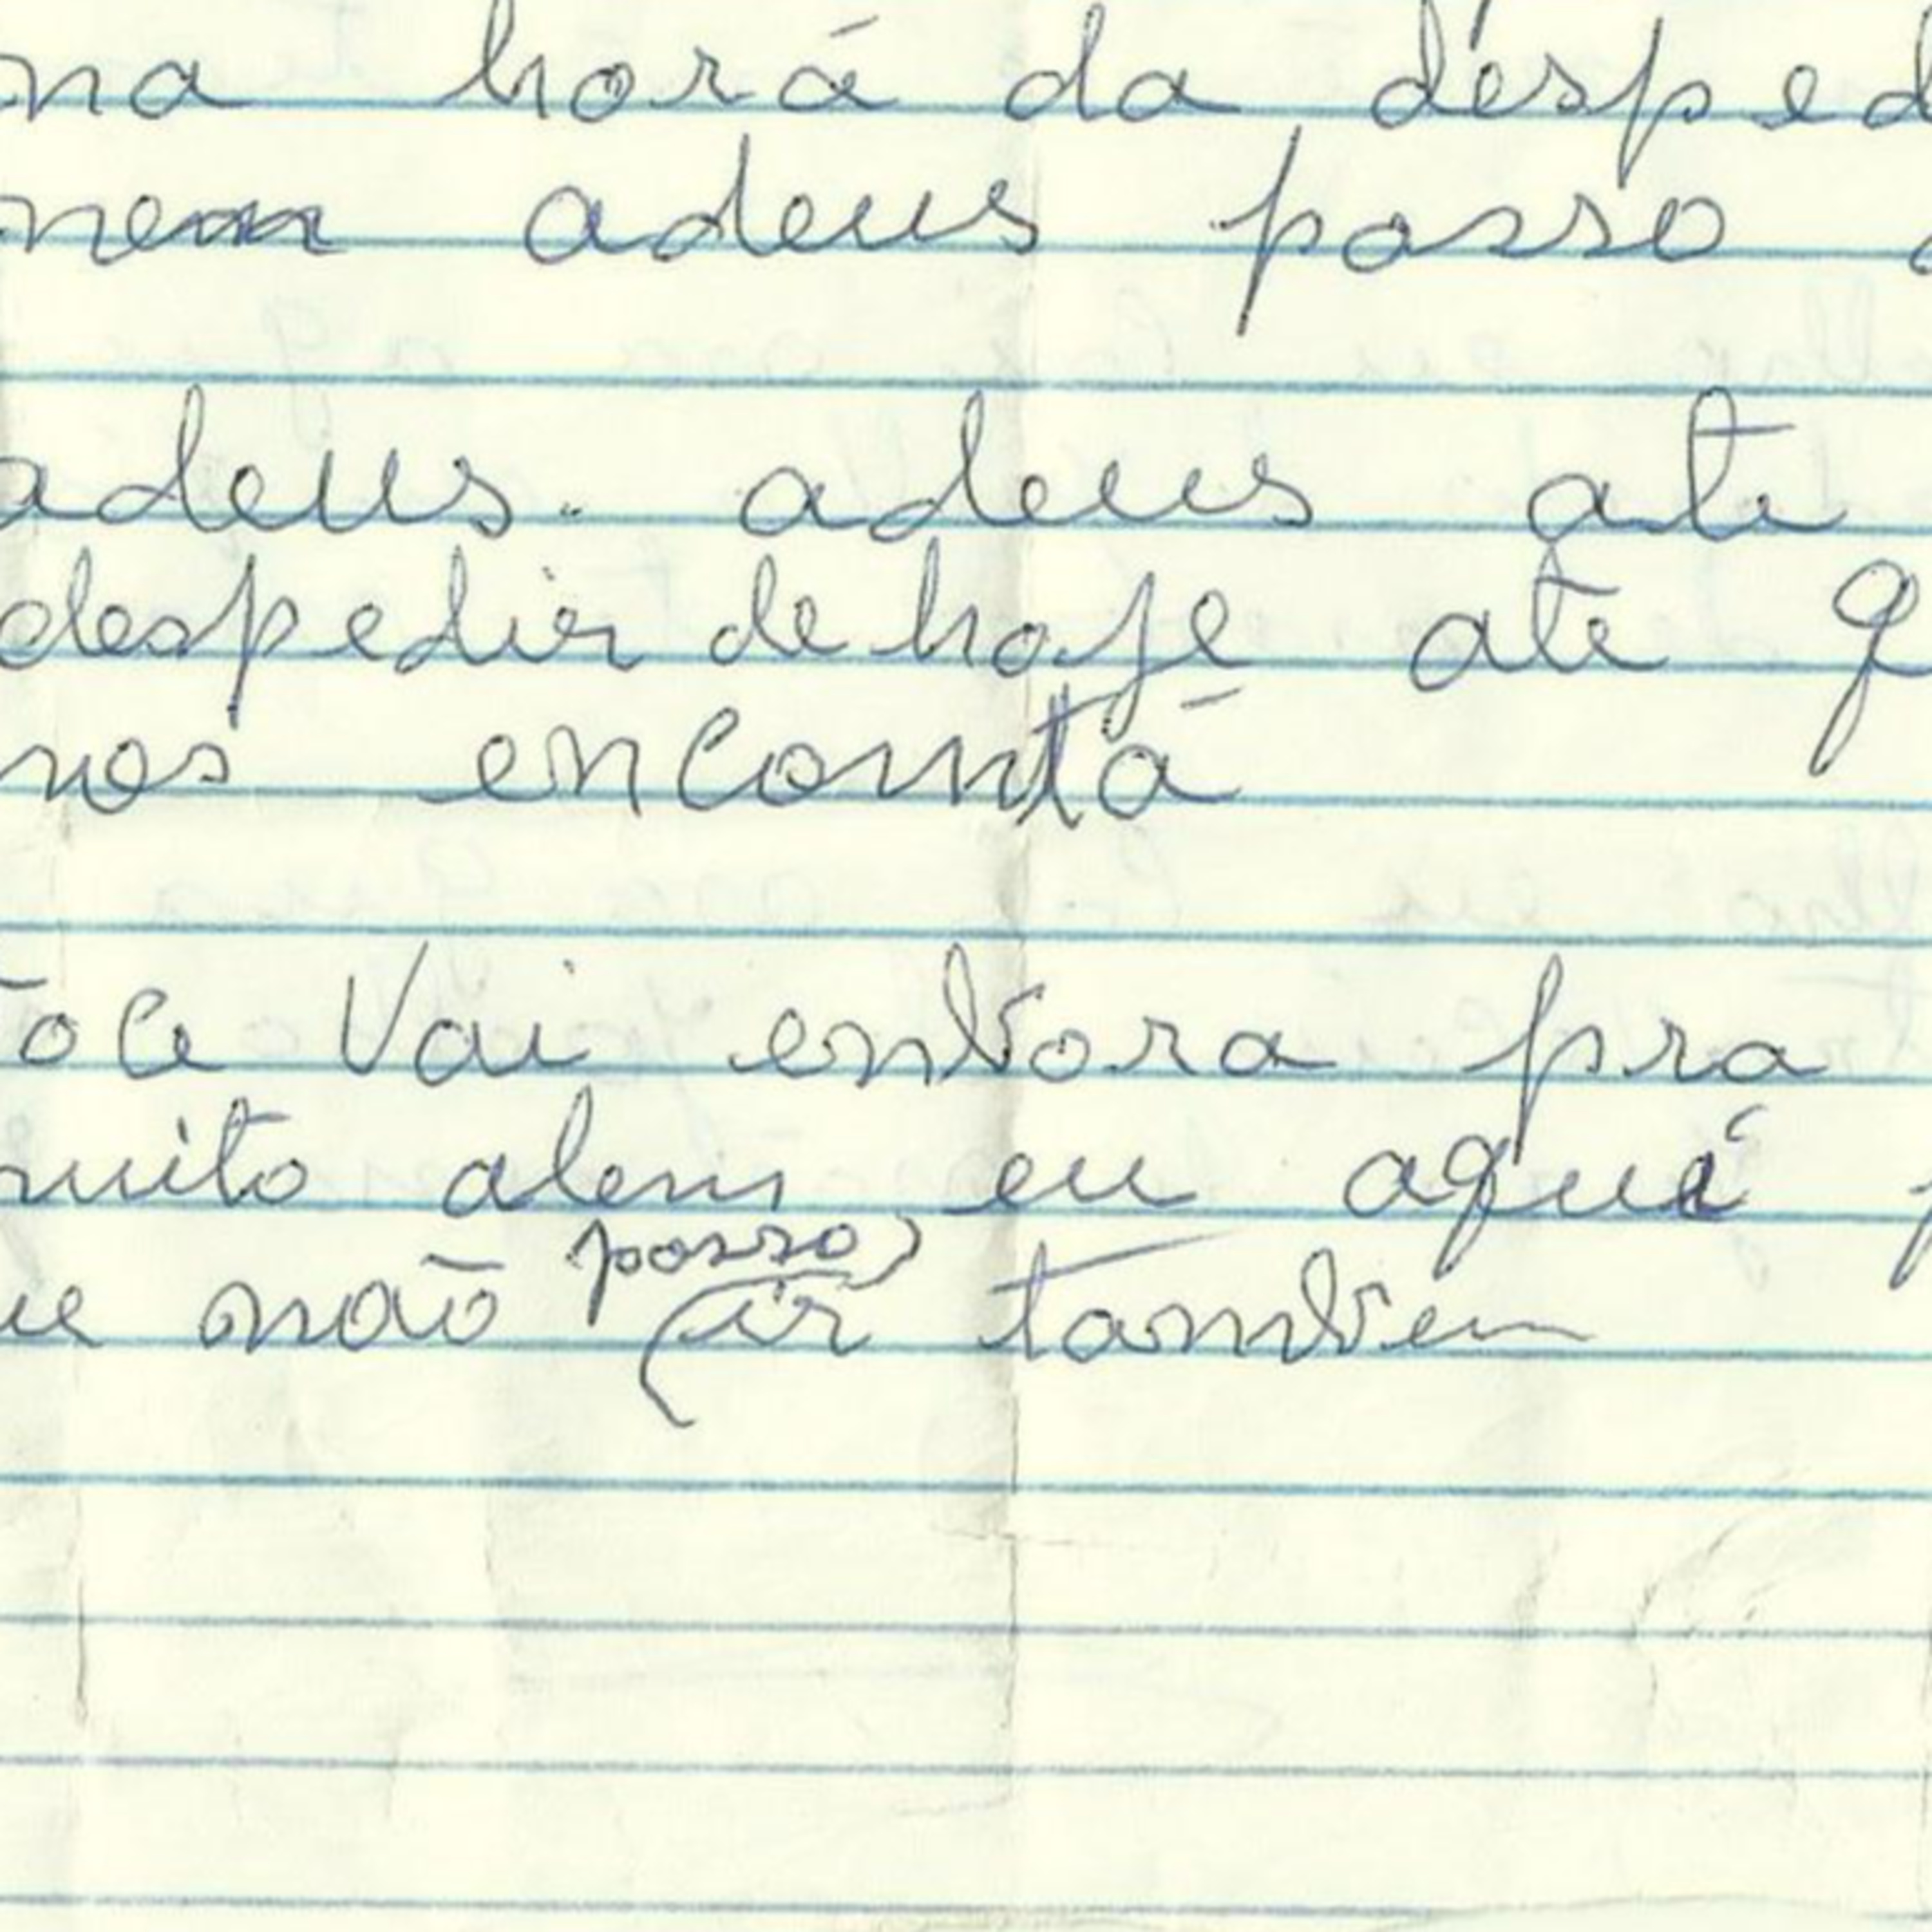 na horá da desped
nem adeus posso
adeus.. adeus ate
despedir de hoje ate q
nos encomtá
oce Vai enbora pra
muito alem eu aquí p
ue não posso ir tambem